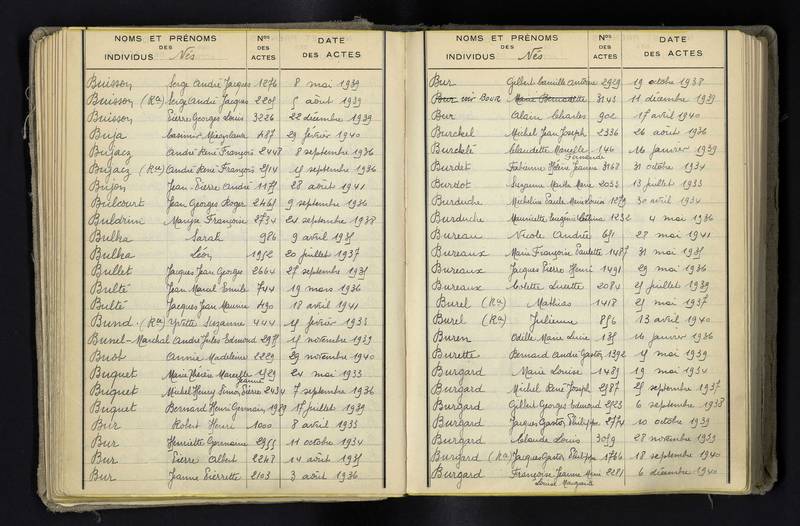 NOMS ET PRÉNOMS DES INDIVIDUS Nés Nos DES ACTES DATE DES ACTES
Buisson Serge André Jacques 1276 8 mai 1939
Buisson (Ra) Serge André Jacques 2205 5 août 1939
Buisson Pierre Georges Louis 3226 22 décembre 1939
Buja Casimir 487 29 février 1940
Bujacz André René François 2448 8 septembre 1936
Bujacz (Ra) André René François 2514 15 septembre 1936
Bujon Jean-Pierre André 1175 28 août 1941
Bulcourt Jean Georges Roger 2461 9 septembre 1936
Buldrini Françoise 2734 24 septembre 1938
Bulka Sarah 986 9 avril 1935
Bulka Léon 1952 20 juillet 1937
Bullet Jacques Jean Georges 2664 27 septembre 1935
Bulté Jean Marcel Emile 744 19 mars 1936
Bulté Jacques Jean Maurice 490 18 avril 1941
Bund (Ra) Yvette Suzanne 444 15 février 1933
Bunel-Marchal André Jules Edmond 2985 15 novembre 1939
Annie Madeleine 2229 29 novembre 1940
Buquet Marie Thérèse Marcelle Jeanne 1529 24 mai 1933
Buquet Michel Henry Pierre 2434 7 septembre 1936
Buquet Bernard Henri Germain 1989 17 juillet 1939
Bur Robert Henri 1000 8 avril 1933
Bur Henriette Germaine 2955 11 octobre 1934
Bur Pierre Albert 2248 14 août 1935
Bur Jeanne Pierrette 2103 3 août 1936
NOMS ET PRÉNOMS DES INDIVIDUS Nés Nos DES ACTES DATE DES ACTES
Bur Gilbert Camille Antoine 2929 19 octobre 1938
Bur voir Bour Marie Bernadette 3143 11 décembre 1939
Bur Alain Charles 902 17 avril 1940
Burckel Michel Jean Joseph 2336 26 août 1936
Burckle Claudette Marcelle Fernande 146 16 janvier 1939
Burdet Fabienne Hélène Jeanne 3168 31 octobre 1934
Burdot Suzanne Marthe Marie 2033 13 juillet 1933
Burduche Micheline Paule Marie Louise 1279 30 avril 1934
Burduche Henriette Eugénie 1232 4 mai 1936
Bureau Nicole Andrée 651 28 mai 1941
Bureaux Marie Françoise Paulette 1487 31 mai 1935
Bureaux Jacques Pierre Henri 1491 29 mai 1936
Bureaux Colette Lucette 2084 25 juillet 1939
Burel (Ra) Mathias 1418 25 mai 1937
Burel (Ra) Julienne 856 13 avril 1940
Buren Odile Marie Lucie 135 16 janvier 1936
Burette Bernard André Gaston 1392 15 mai 1939
Burgard Marie Louise 1489 19 mai 1934
Burgard Michel René Joseph 2587 25 septembre 1937
Burgard Gilbert Georges Edmond 2523 6 septembre 1938
Burgard Jacques Gaston Philippe 2774 10 octobre 1939
Burgard Louis 3059 28 novembre 1939
Burgard (Ra) Jacques Gaston Philippe 1766 18 septembre 1940
Burgard Françoise Jeanne Louise 2281 6 décembre 1940